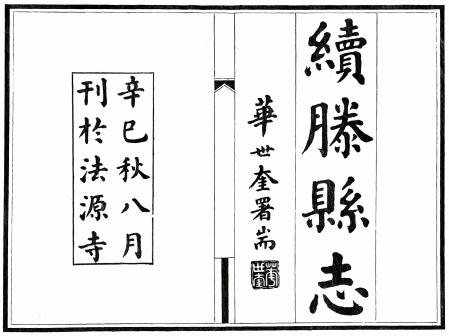 續滕縣志
華世奎署耑
華世奎
辛巳秋八月
刊於法源寺